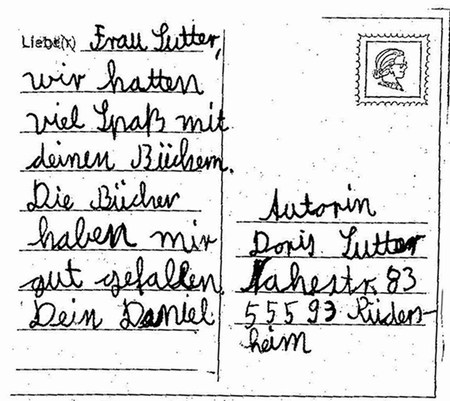 Liebe(r) Frau Sutter,
wir hatten
viel Spaß mit
deinen Büchern.
Die Bücher
haben mir
gut gefallen.
Dein Daniel
Autorin
Doris Sutter
Nahestr. 83
55593 Rüdes-
heim